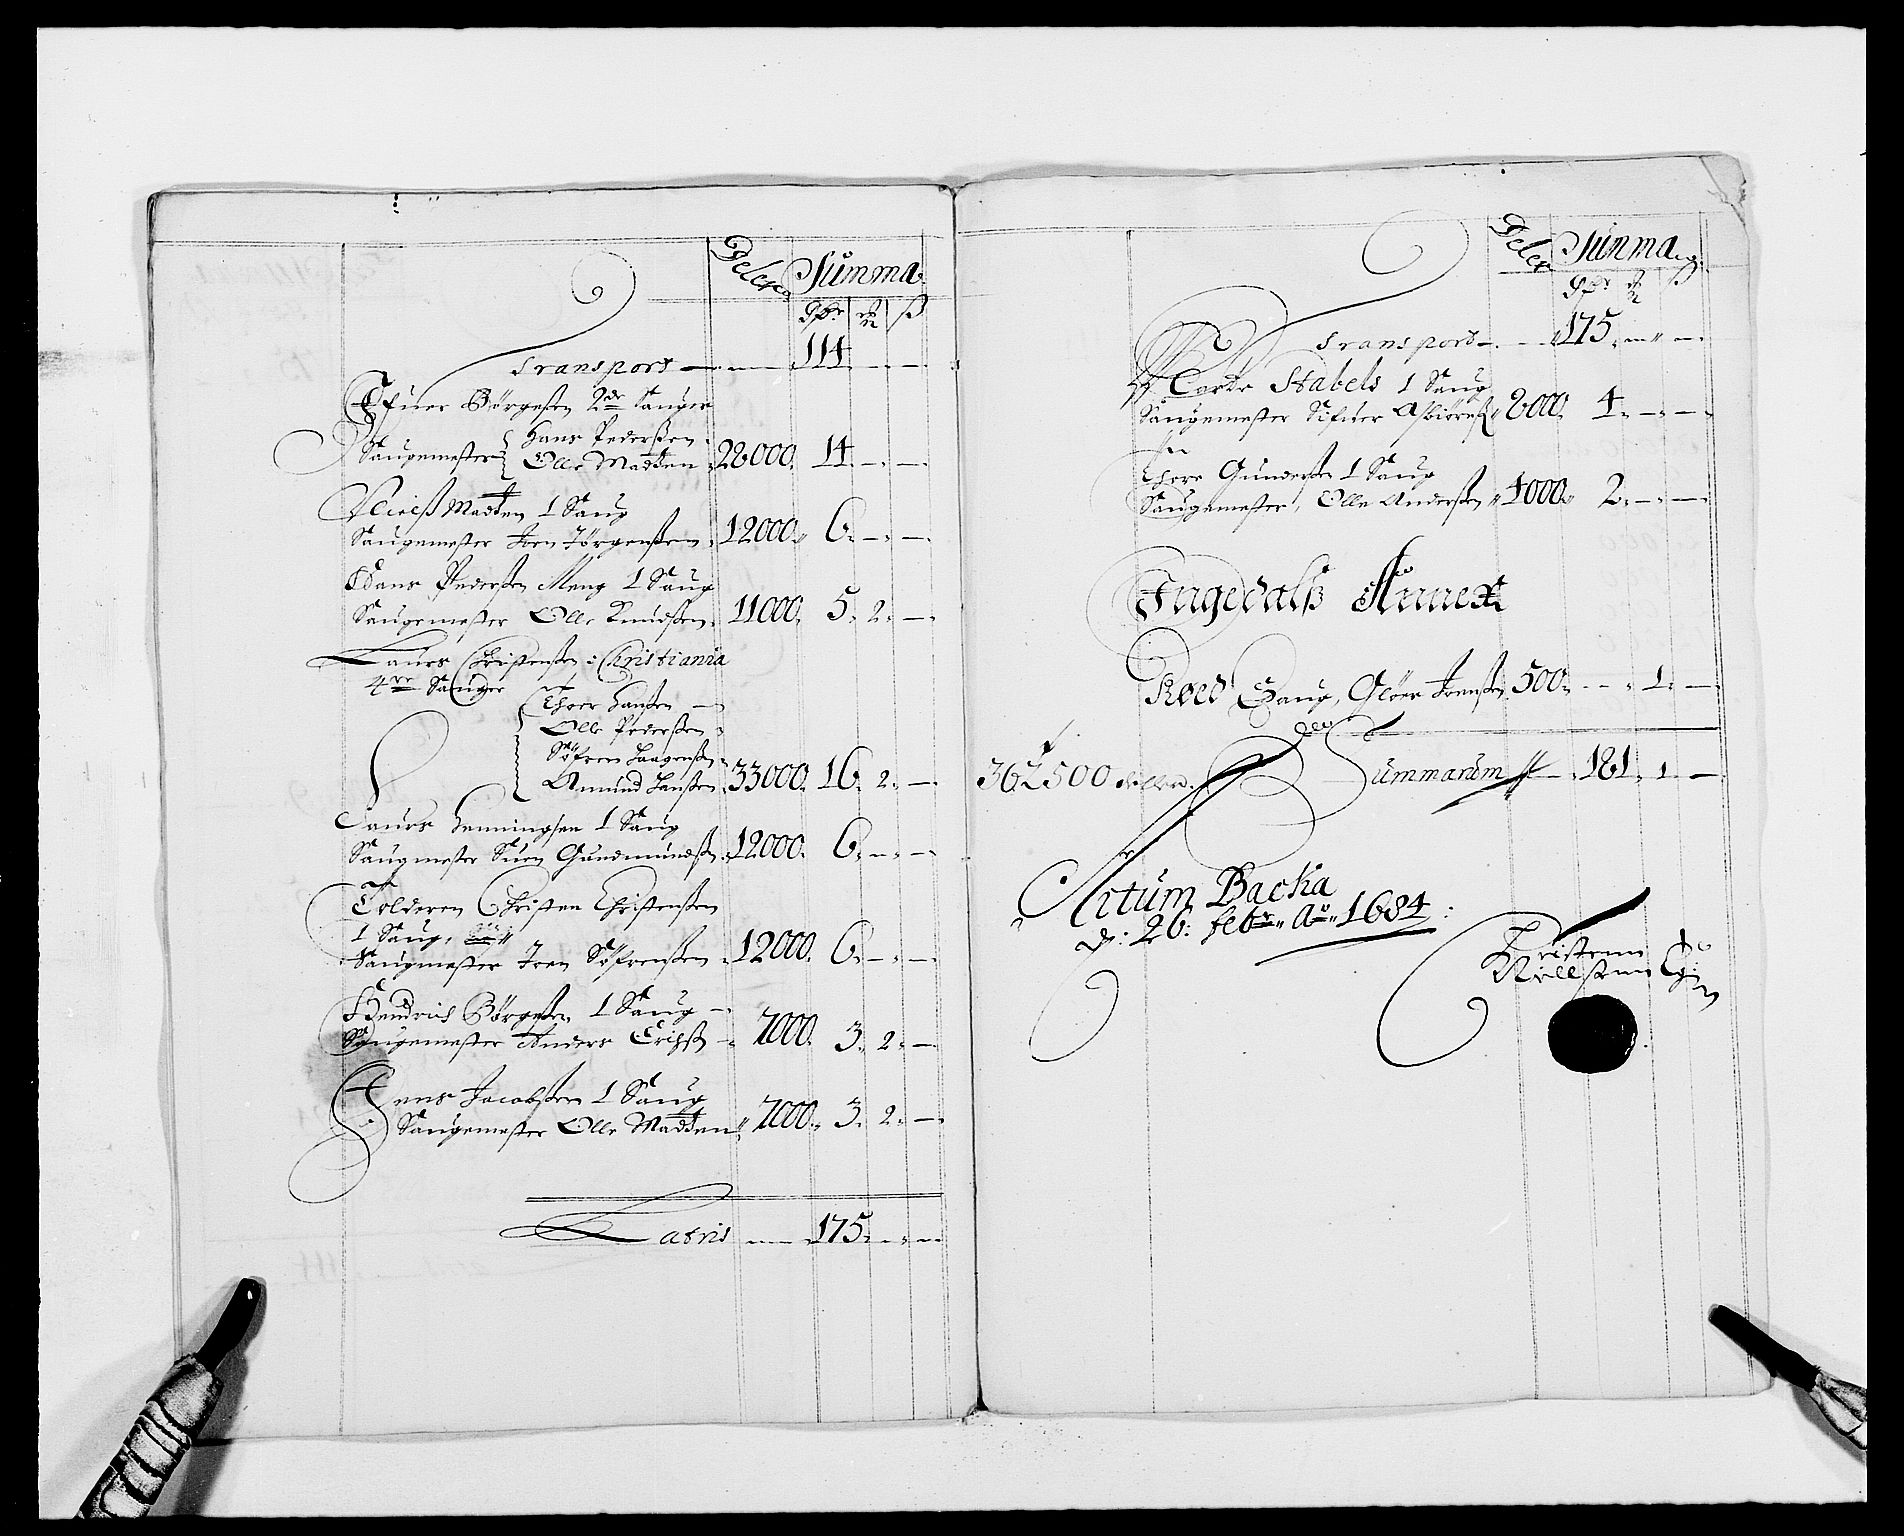 Deler Summa
Spr ß
Transport 114
Børgesen 2de Sauger
Hans Pedersen
Saugemester Olle Madsen 28000 14
Madsen 1 Saug
Saugemester Joen Jörgensen 12000 6
Hans Pedersen Meng 1 Saug
Saugemester Olle Knudsen 11000 5 2
Laurs Christensen i Christiania
4re Sauger
Thoer Hansen
Olle Pedersen
Söfren Laagensen
Amund Hansen 33000 16 2
Laurs Henningsen 1 Saug
Saugmester Suen Gundmundsen 12000 6
Tolderen Christen Christensen
1 Saug
Saugmester Joen Söfrensen 12000 6
Hendrich Børgesen 1 Saug
Saugemester Anders Erichß 7000 3 2
Jens Jacobsen 1 Saug
Saugemester Olle Madsen 7000 3 2
Latris 175
Deler Summa
Spr ß
Transport 175
Stabels 1 Saug
Saugemester Asbiörnß 8000 4
sen
Thore Gundersen 1 Saug
Saugemester, Olle Andersen 4000 2
Ingedalß Annex
Röed Saug, Glöer Joensen 500 1
362500 deller Summarum 181 1
Actum Backa
d: 26: febr Ao 1684
Christenn
Niellsenn